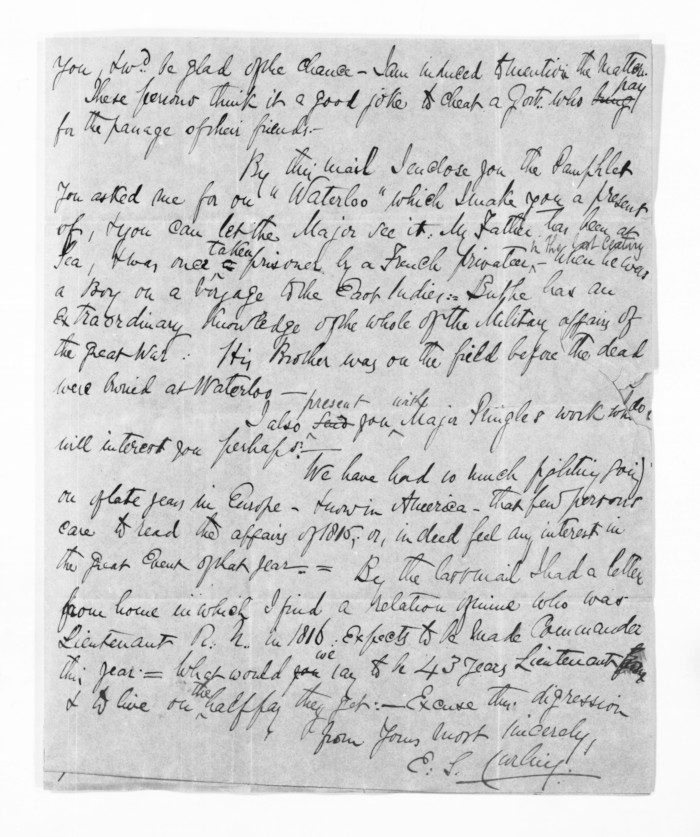 you, & wd. be glad of the chance - I am induced to mention the matter.
These persons think it a good joke to cheat a Govt. who pay
for the passage of their friends. -
By this mail I enclose you the Pamphlet
you asked me for on "Waterloo" which I make you a present
of, & you can let the Major see it. My Father has been at
Sea, & was once taken prisoner by a French privateer, - in the last Century when he was
a Boy on a voyage to the East Indies: = But he has an
extraordinary knowledge of the whole of the Military affairs of
the Great War. His Brother was on the field before the dead
were buried at Waterloo -
I also present you with Major Pringle's work
will interest you perhaps: -
We have had so much fighting going
on of late years in Europe - & now in America - that few persons
care to read the affairs of 1815, or, indeed feel any interest in
the great Event of that year - = By the last mail I had a letter
from home in which I find a relation of mine who was
Lieutenant R. N. in 1815 Expects to be made Commander
this year: = What would we say to be 43 years Lieutenant
& to live on the half pay they get: - Excuse this digression
from Yours most sincerely,
E. S. Curling.